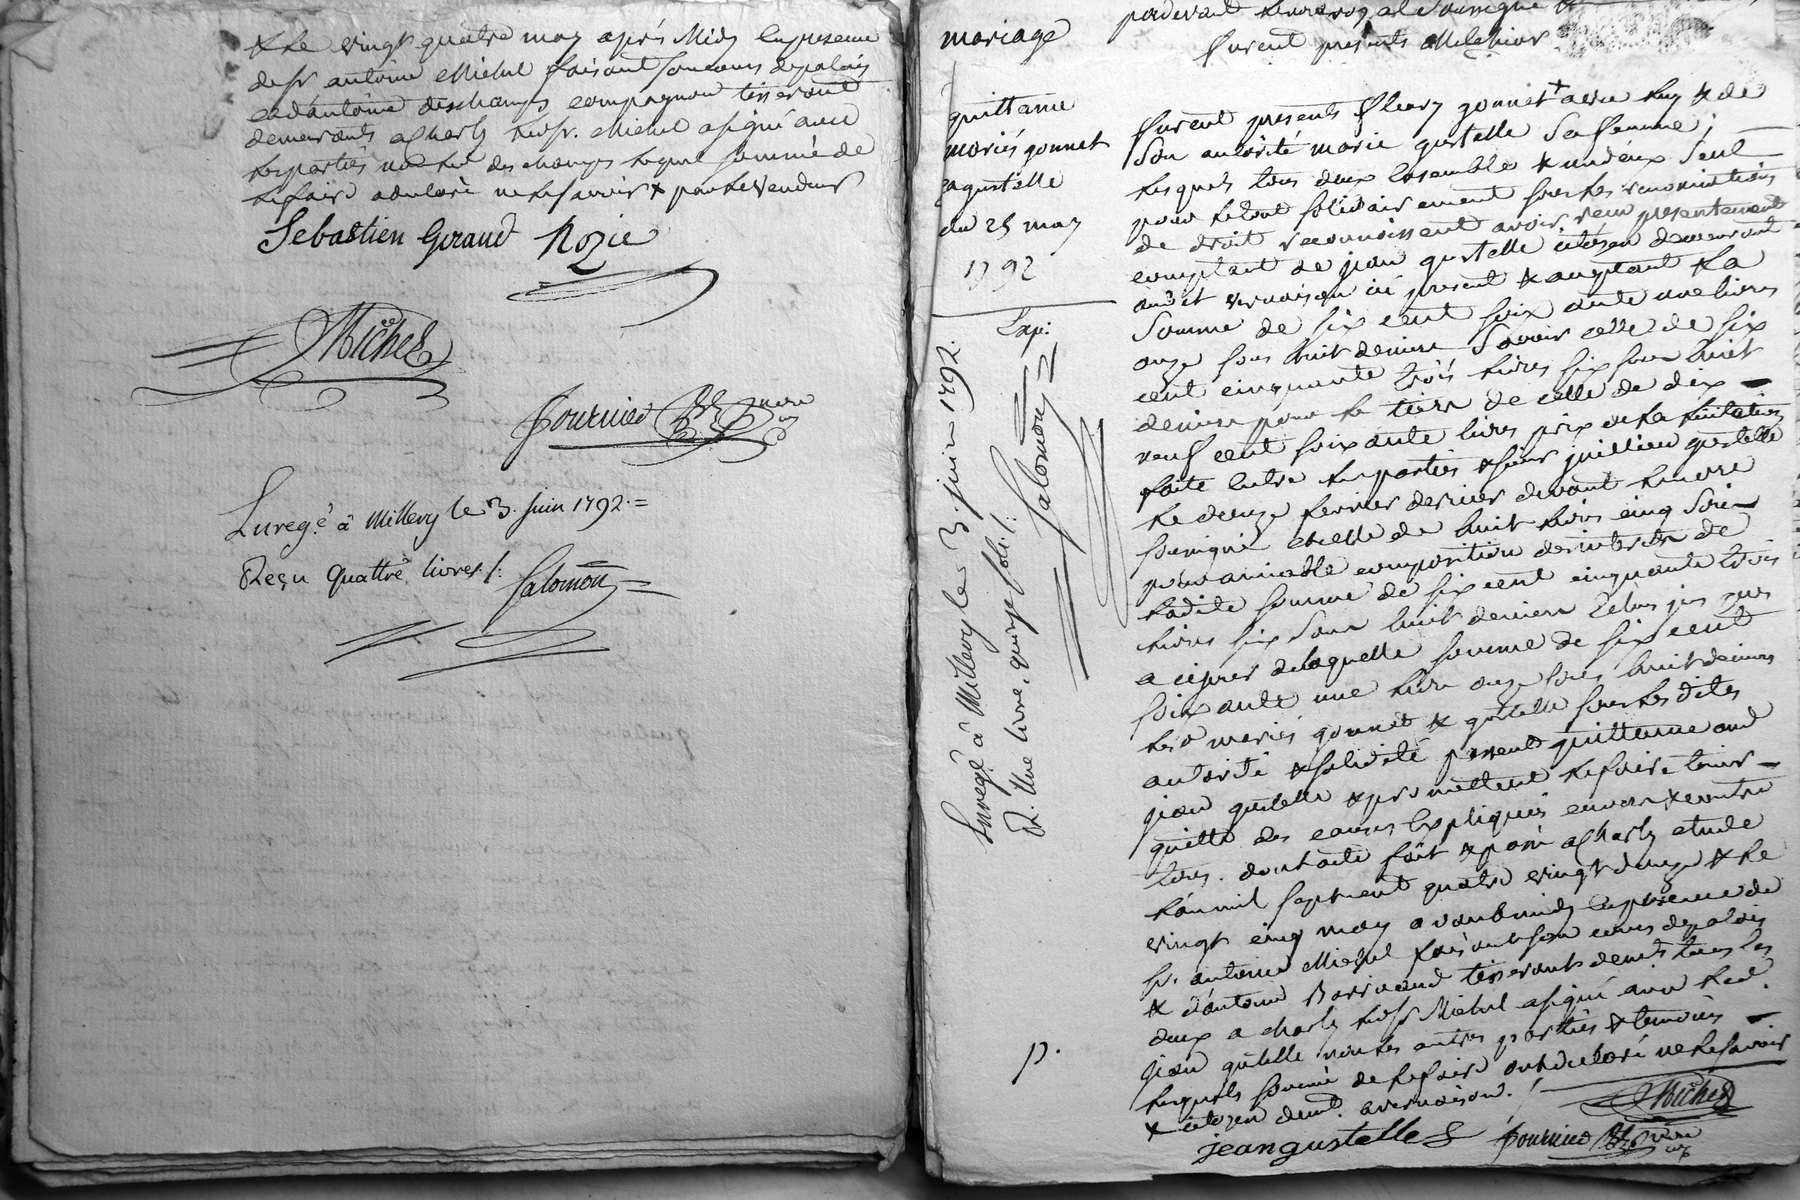 & le vingt quatre may après Midy en presence
de sr antoine Michel faisant son cours de palais
et d'antoine deschamps compagnon tisserant
demeurants a Charly led. sr. Michel a signé avec
les parties non led deschamps lequel sommé de
le faire a declaré ne le savoir & par le vendeur
Sebastien Geraud Rozie
Michel
fournier
Enregé à Millery le 3. Juin 1792.=
Reçu Quattre livres /: Salomon =
mariage
quittance
mariés gonnet
& gustelle
du 25 may
1792
Exp:
Enregé à Millery le 3. juin 1792.
R. Une livre, quinze sols /: Salomon
p.
pardevant le notre royal soussigné
furent presents Melchior
furent presents fleury gonnet + avec luy & de
son autorité marie gustelle sa femme;
lesquels tous deux Ensemble & un d'eux seul
pour le tout solidairement sous les renonciations
de droit reconnoissent avoir reçu presentement
comptant de jean gustelle citoyen demeurant
aud. vernaison ici present & acceptant la
somme de six cent soix ante une livres
onze sous huit deniers Savoir celle de six
cent cinquante trois livres six sous huit
deniers pour le tiers de celle de dix
neuf cent soix ante livres prix de la licitation
faite entre les parties & sieur jullien gustelle
le douze fevrier dernier devant le notre
soussigné et celle de huit livres cinq sous
pour amiable composition des interets de
ladite somme de six cent cinquante trois
livres six sous huit deniers Echus jus ques
a ce jour de laquelle somme de six cent
soix ante une livre onze sous huit deniers
lesd mariés gonnet & gustelle sous les dites
autorité & solidité passent quittance aud
jean gustelle & promettent le faire tenir
quitte des causes Expliquées envers & contre
tous. dont acte fait & passé a Charly etude
l'an mil sept cent quatre vingt douze & le
vingt cinq may avant midy en presence de
sr. antoine Michel faisant son cours de palais
& d'antoine Barriaud tisserants demts tous les
deux a charly led. sr Michel a signé avec led.
jean gustelle non les autres parties & temoins
lesquels sommé de le faire ont declaré ne le savoir
+ citoyen demt. a vernaison. /
Michel
jean gustelle fournier